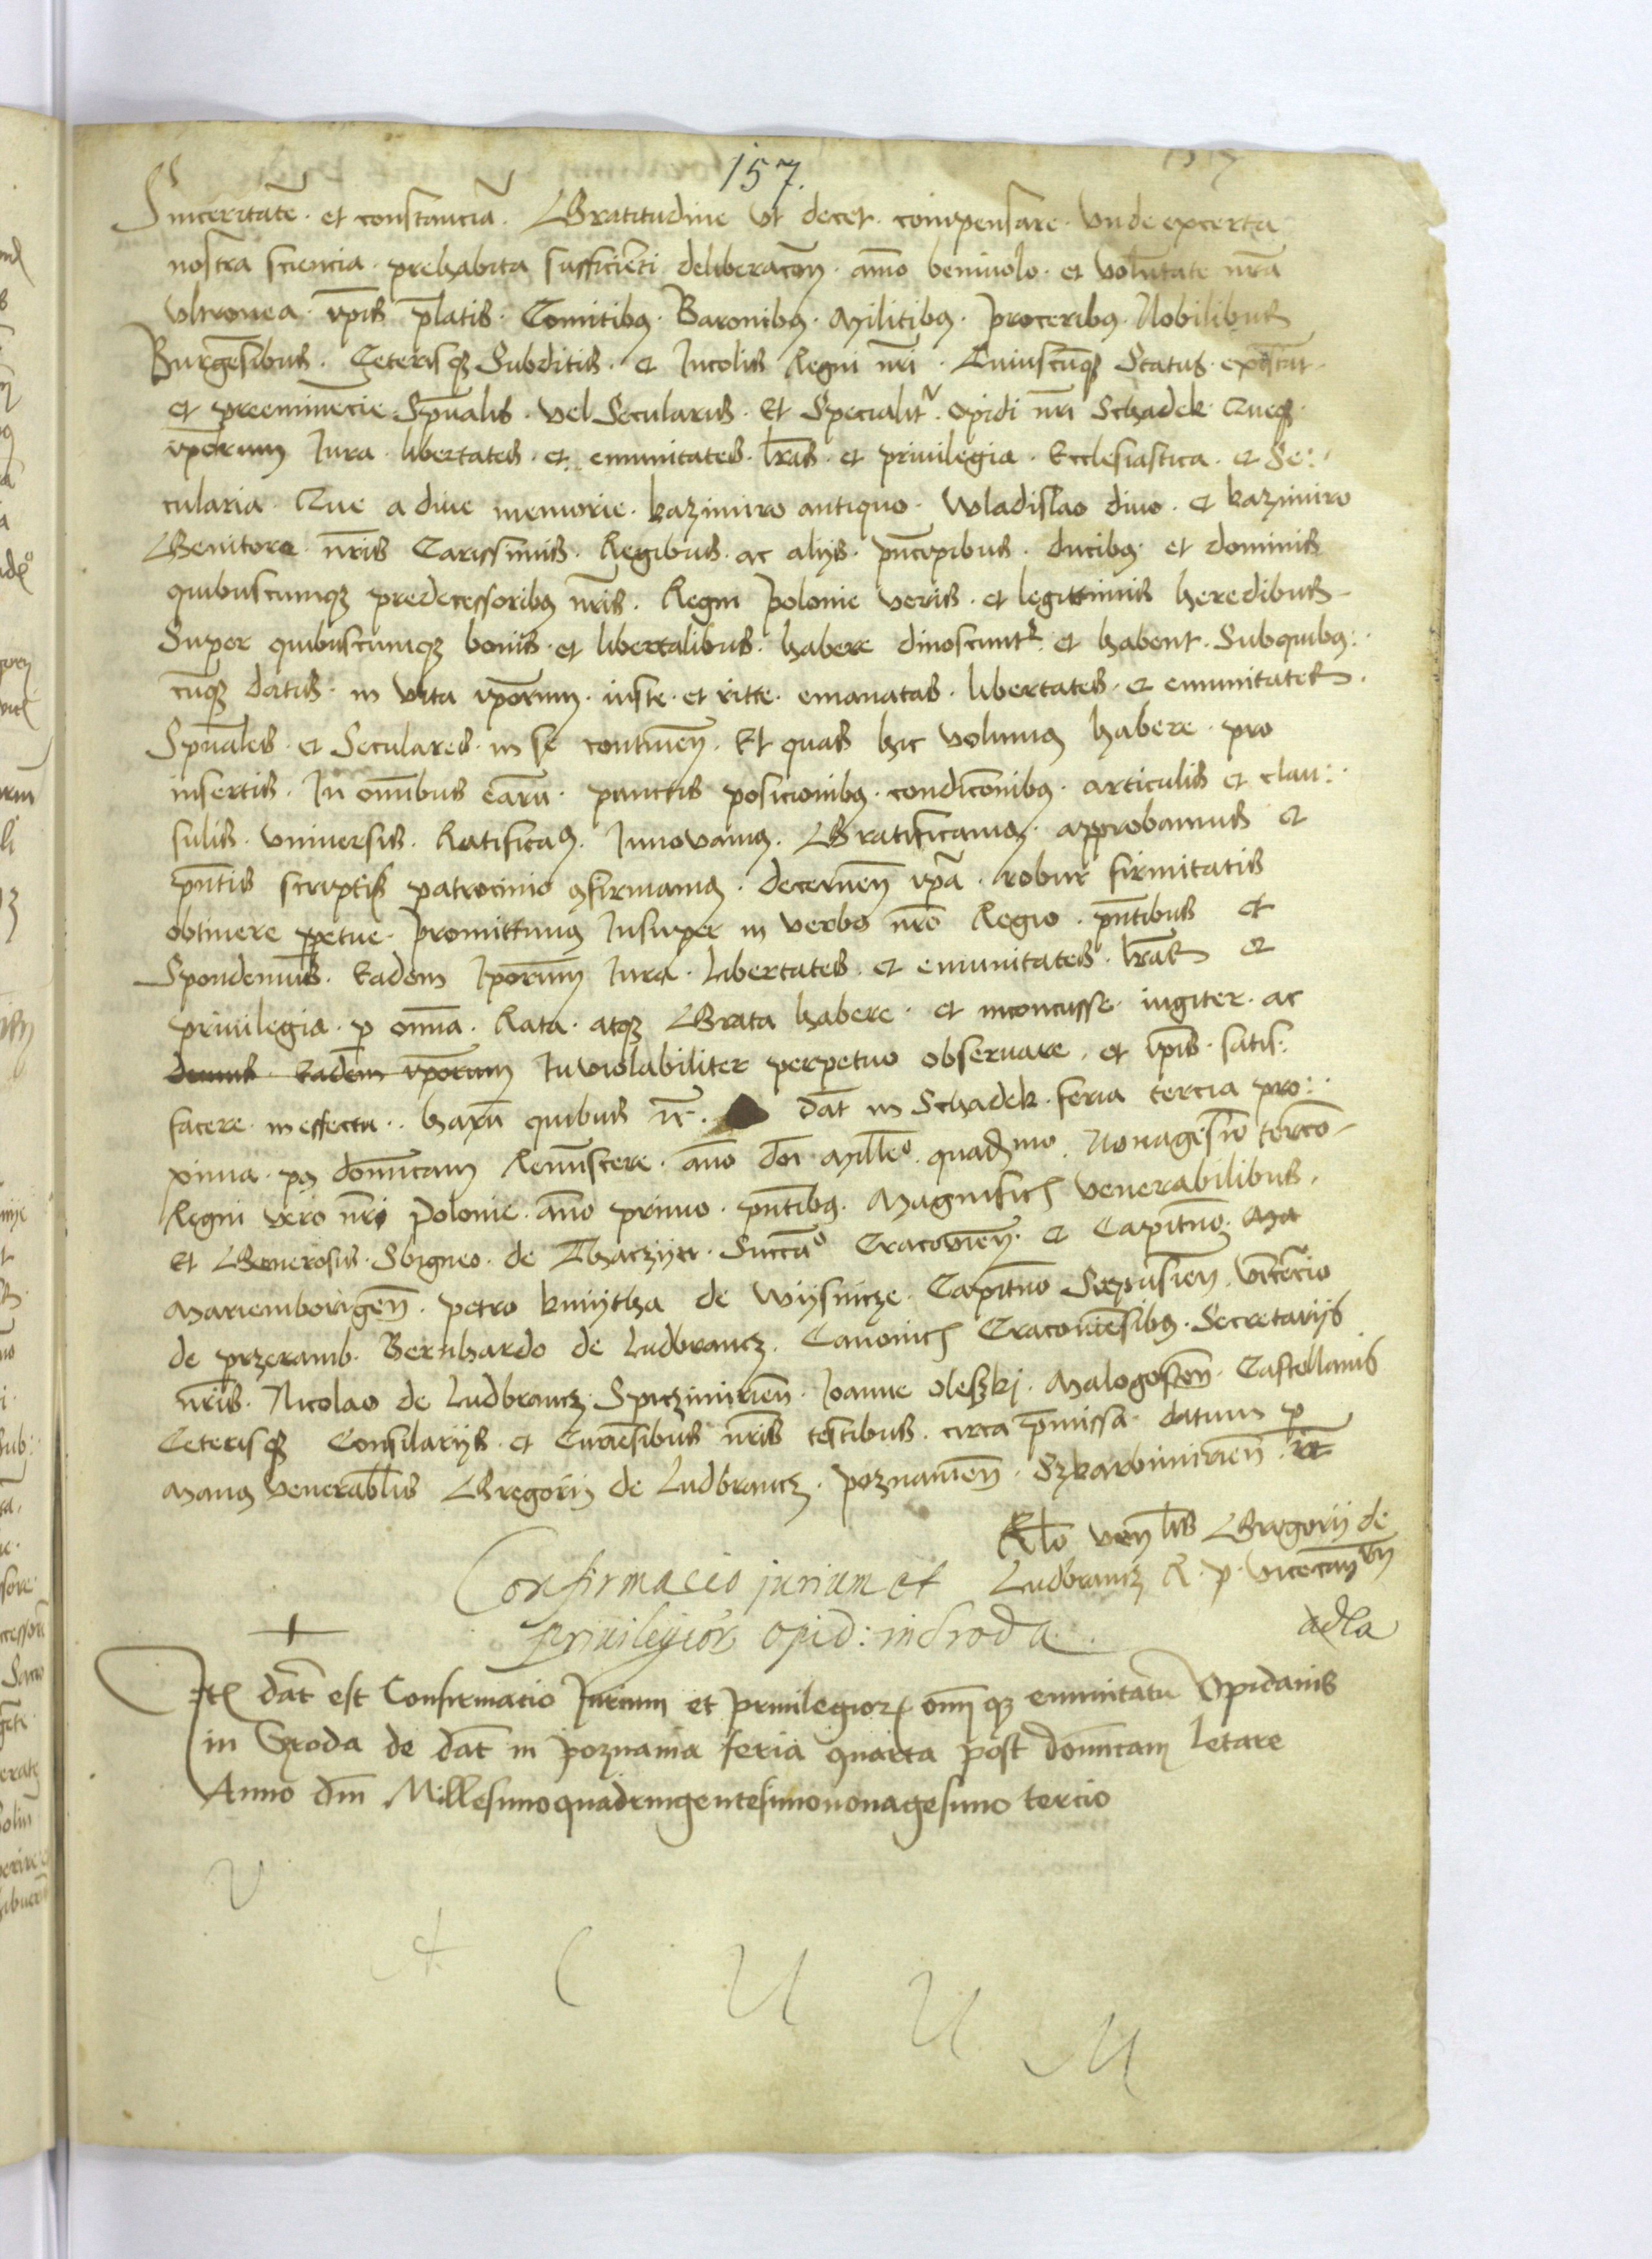 157.
Sinceritatē · et constanciā · Gratitudine ut decet · compensare · vnde ex certa
nostra sciencia · prehabita sufficiēti deliberacōn · aīmo beniuolo · et volūtate nr̄a
vltronea · ip̄is p̄latis · Comitibꝫ · Baronibꝫ · Militibꝫ · proceribꝫ · Nobilibus
Burgēsibus · Ceterisqꝫ Subditis · et Incolis Regni nr̄i · Cuiuscūqꝫ Status
et preeminēcie Spūalis · vel Secularis · Et Specialitr · opidi nr̄i Schadek
ip̄orum Iura · libertates · et emunitates · lr̄as · et priuilegia · Ecclesiastica · et Se:
cularia · Que a diue memorie · kazimiro antiquo · Wladislao diuo · et kazimiro
Genitore nr̄is Carissimis · Regibus · ac alijs · pn̄cipibus · ducibꝫ et dominis
quibuscumqꝫ predecessoribꝫ nr̄is · Regni polonie veris · et legittimis heredibus
Super quibuscumqꝫ bonis · et libertatibus · habere dinoscuntr et habent · Subquibꝫ:
cūqꝫ datis · in vita ip̄orum · iuste · et ritte · emanatas · libertates · et emunitates
Spūales · et Seculares · in se continen̄ · Et quas hic volumꝫ habere · pro
insertis · In om̄ibus earū · punctis posicionibꝫ · condic̄onibꝫ · articulis et clau:
sulis · vniuersis · Ratificamꝫ · Innouamꝫ · Gratificamꝫ · approbamus et
pn̄tis scripti patrocinio ꝯfirmamꝫ · decernen̄ ip̄a · robur firmitatis
obtinere ꝑpetue · promittimꝫ Insuper in verbo nr̄o Regio · pn̄tibus et
Spondemus · Eadem Ip̄orum Iura · Libertates · et emunitates · lr̄as et
priuilegia · ꝑ om̄ia · Rata · atqꝫ Grata habere · et inconcusse · iugiter · ac
demus · Eadem ip̄orum Inuiolabiliter perpetuo obseruare · et ip̄is · satis:
facere in effectu · harū quibus ⁊c̄ · Dat̄ in Schadek · feria tercia pro:
xima · pꝫ dom̄icam Reminiscere · an̄o do͞i mill̄eo quadmo Nonagesīo tercō
Regni vero nr̄i polonie · an̄o primo · pn̄tibꝫ · Magnificis venerabilibus ·
et Generosis · Sbigneo · de Thaczijn · Succao Cracouien̄ · et Capitn̄o · Ma
Mariemborgen̄ · petro kmijtha de Wijsnicze · Capitn̄o Scepusien̄ · vincēcio
de przeramb · Bernhardo de Ludbrancz · Canonicis Cracouiēsibꝫ · Secretarijs
nr̄is · Nicolao de Ludbrancz · Spiczimirien̄ · Ioanne oleszkj · Malogosten̄ · Castellanis
Ceterisqꝫ Consilarijs · et Curiēsibus nr̄is testibus · circa p̄missa · datum ꝑ
manꝫ venerabl̄is Gregorij de Ludbrancz · poznanien̄ · Szkarbimirien̄ · ⁊c̄
Rl̄o ven̄lis Gregorij de
Ludbrancz R · p · vicecan̄
adla
Confirmacio jurium et
priuilegior̄ opid: in Sroda
It̄ dat̄ est Confirmatio Iurium et priuilegioꝝ om̄iqꝫ emunitatū Opidanis
in Szroda de dat̄ in poznania feria quarta post dom̄icam letare
Anno dn̄i Millesimoquadringentesimononagesimo tercio
V
A C U U M